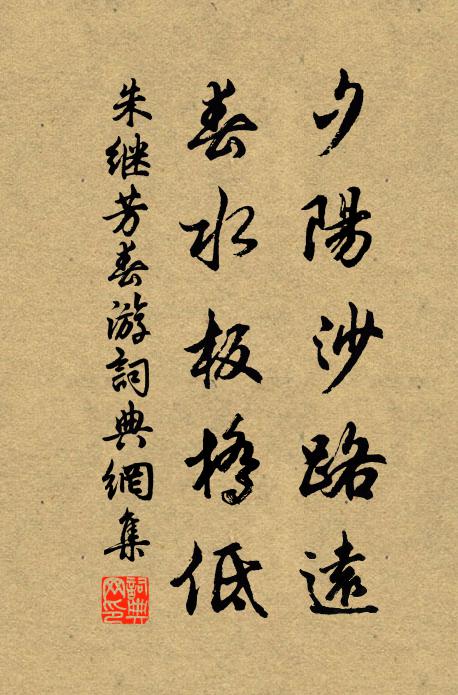 夕陽沙路遠
春水板橋低
朱继芳春游詞典網集
詞典网印